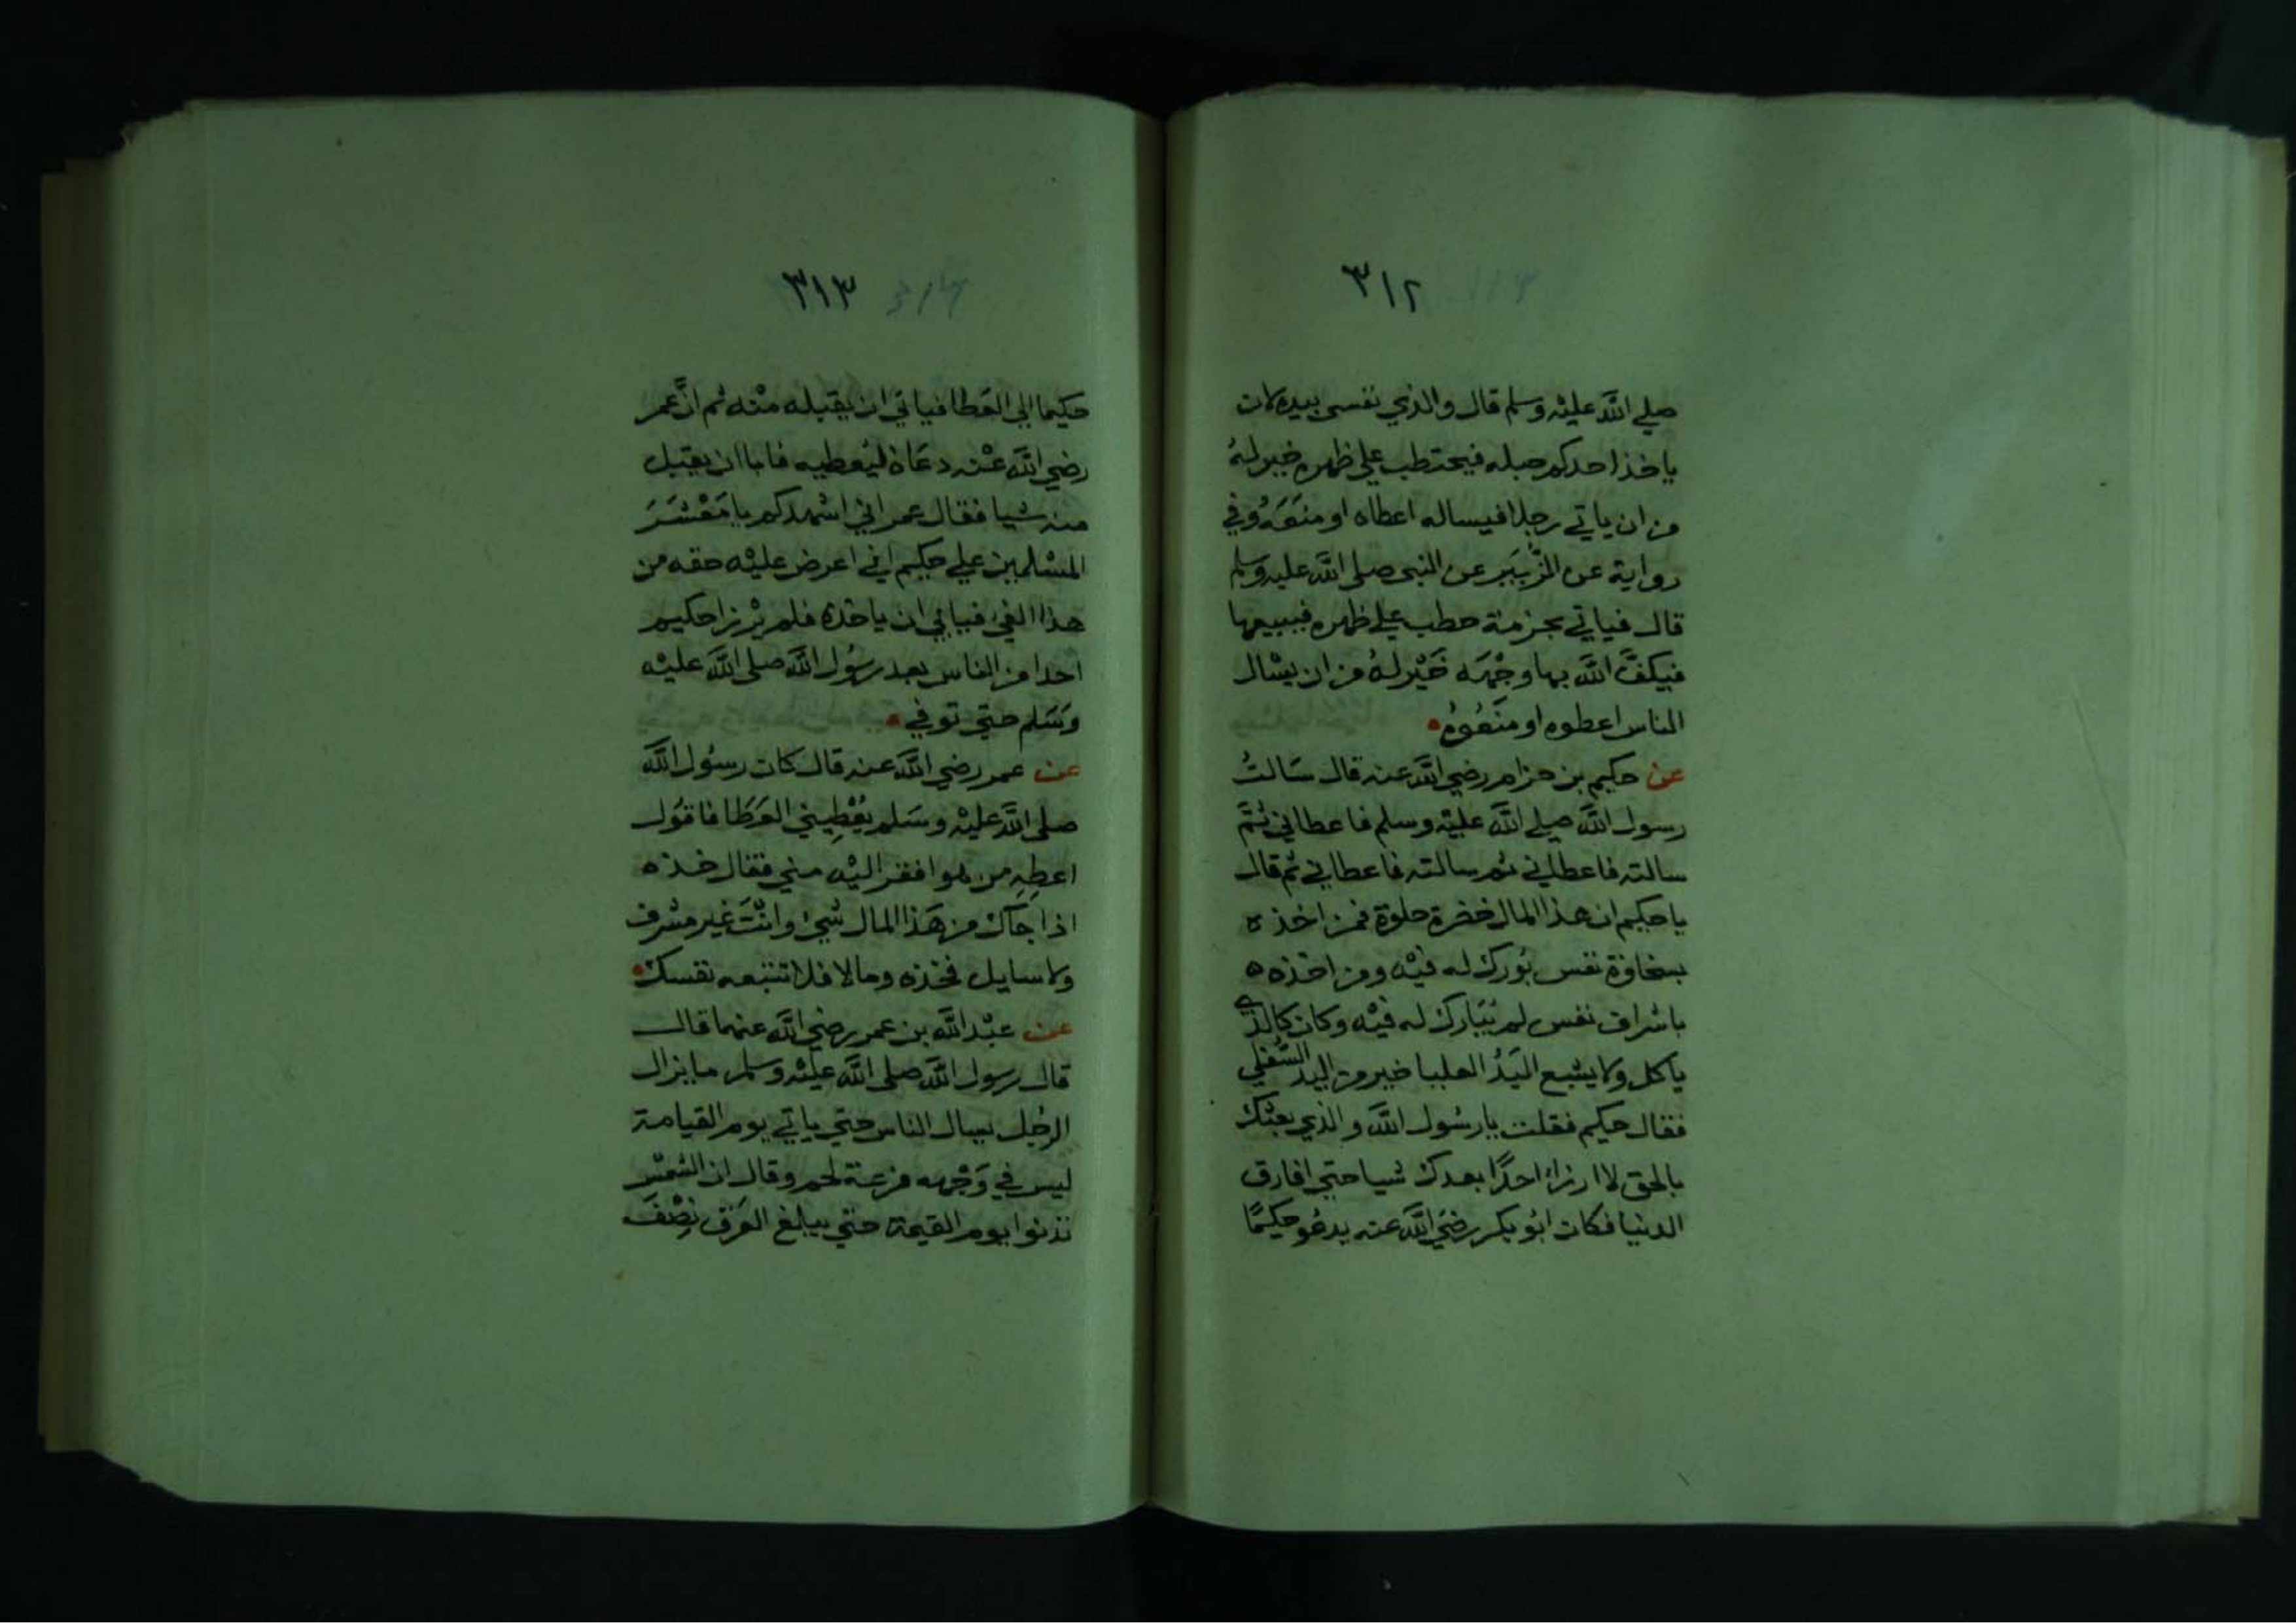 ٣١٢
صلي الله عليه وسلم قال والذي نفسي بيده لان
ياخذ احدكم حبله فيحتطب علي ظهره خير لهُ
من ان ياتي رجلا فيساله اعطاه او منَعَهُ وفي
رواية عن الزُّبَير عن النبي صلى الله عليه وسلم
قال فياتي بحزمة حطب علي ظهره فيبيعها
فيكفَّ الله بها وجْهَه خَيْر لهُ من ان يسْال
الناس اعطوه او منَعُوهُ
عن حكيم بن حزام رضي الله عنه قال سَالتُ
رسول الله صلي الله عليْه وسلم فاعطاني ثُمَّ
سالته فاعطاني ثم سالته فاعطاني ثم قال
يا حكيم ان هذا المال خضرة حلوة فمن اخذه
بسخاوة نفس بُورك له فيْه ومن اخذه
باشراف نفس لم يُبَارك له فيْه وكان كالذي
ياكل ولا يشبع اليَدُ العليا خير من اليد السُّفلي
فقال حكيم فقلت يا رسُول الله والذي بعثك
بالحق لا ارزاُ احدًا بعدك شيا حتي افارق
الدنيا فكان ابُو بكر رضي الله عنه يدعُو حكيمًا
٣١٣
حكيما الي العَطا فياتي ان يقبله منْه ثم انَّ عمر
رضي الله عنْه دعَاهُ ليُعطيه فابا ان يقبل
منه شيا فقال عمر اني اشهدكم يا مَعْشَرَ
المسْلمين علي حكيم اني اعرض عليْه حقه من
هذا الفيْ فيابي ان ياخذه فلم يرْزا حكيم
احدا من الناس بعد رسُول الله صلى الله عليْه
وسَلم حتي توفي
عن عمر رضي الله عنه قال كان رسُول الله
صلى الله عليْه وسَلم يُعْطِيني العَطَا فاقُول
اعطِهِ من هو افقر اليْه مني فقال خذه
اذا جاك من هَذا المال شيْ وانْتَ غير مشرف
ولا سايل فخذه وما لا فلا تتبعه نفسك
عن عبْد الله بن عمر رضي الله عنهما قال
قال رسول الله صلى الله عليْه وسلم ما يزال
الرجُل يسال الناس حتي ياتي يوم القيامة
ليس في وَجْهه مزعة لحم وقال ان الشمْس
تدنوا يوم القيمة حتي يبلغ العَرَق نِصْفَ